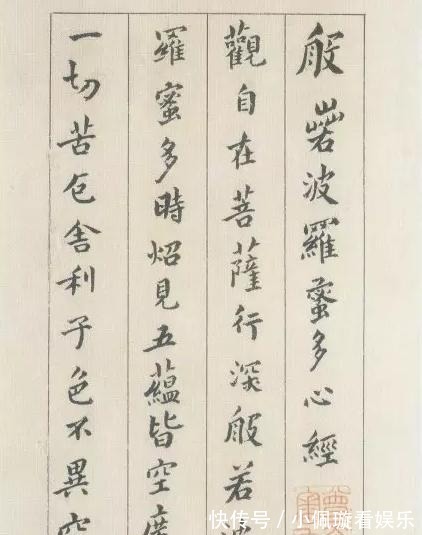 般若波羅蜜多心經
觀自在菩薩行深般若
羅蜜多時炤見五蘊皆空度
一切苦厄舍利子色不異空
快传号 / 小佩璇看娱乐